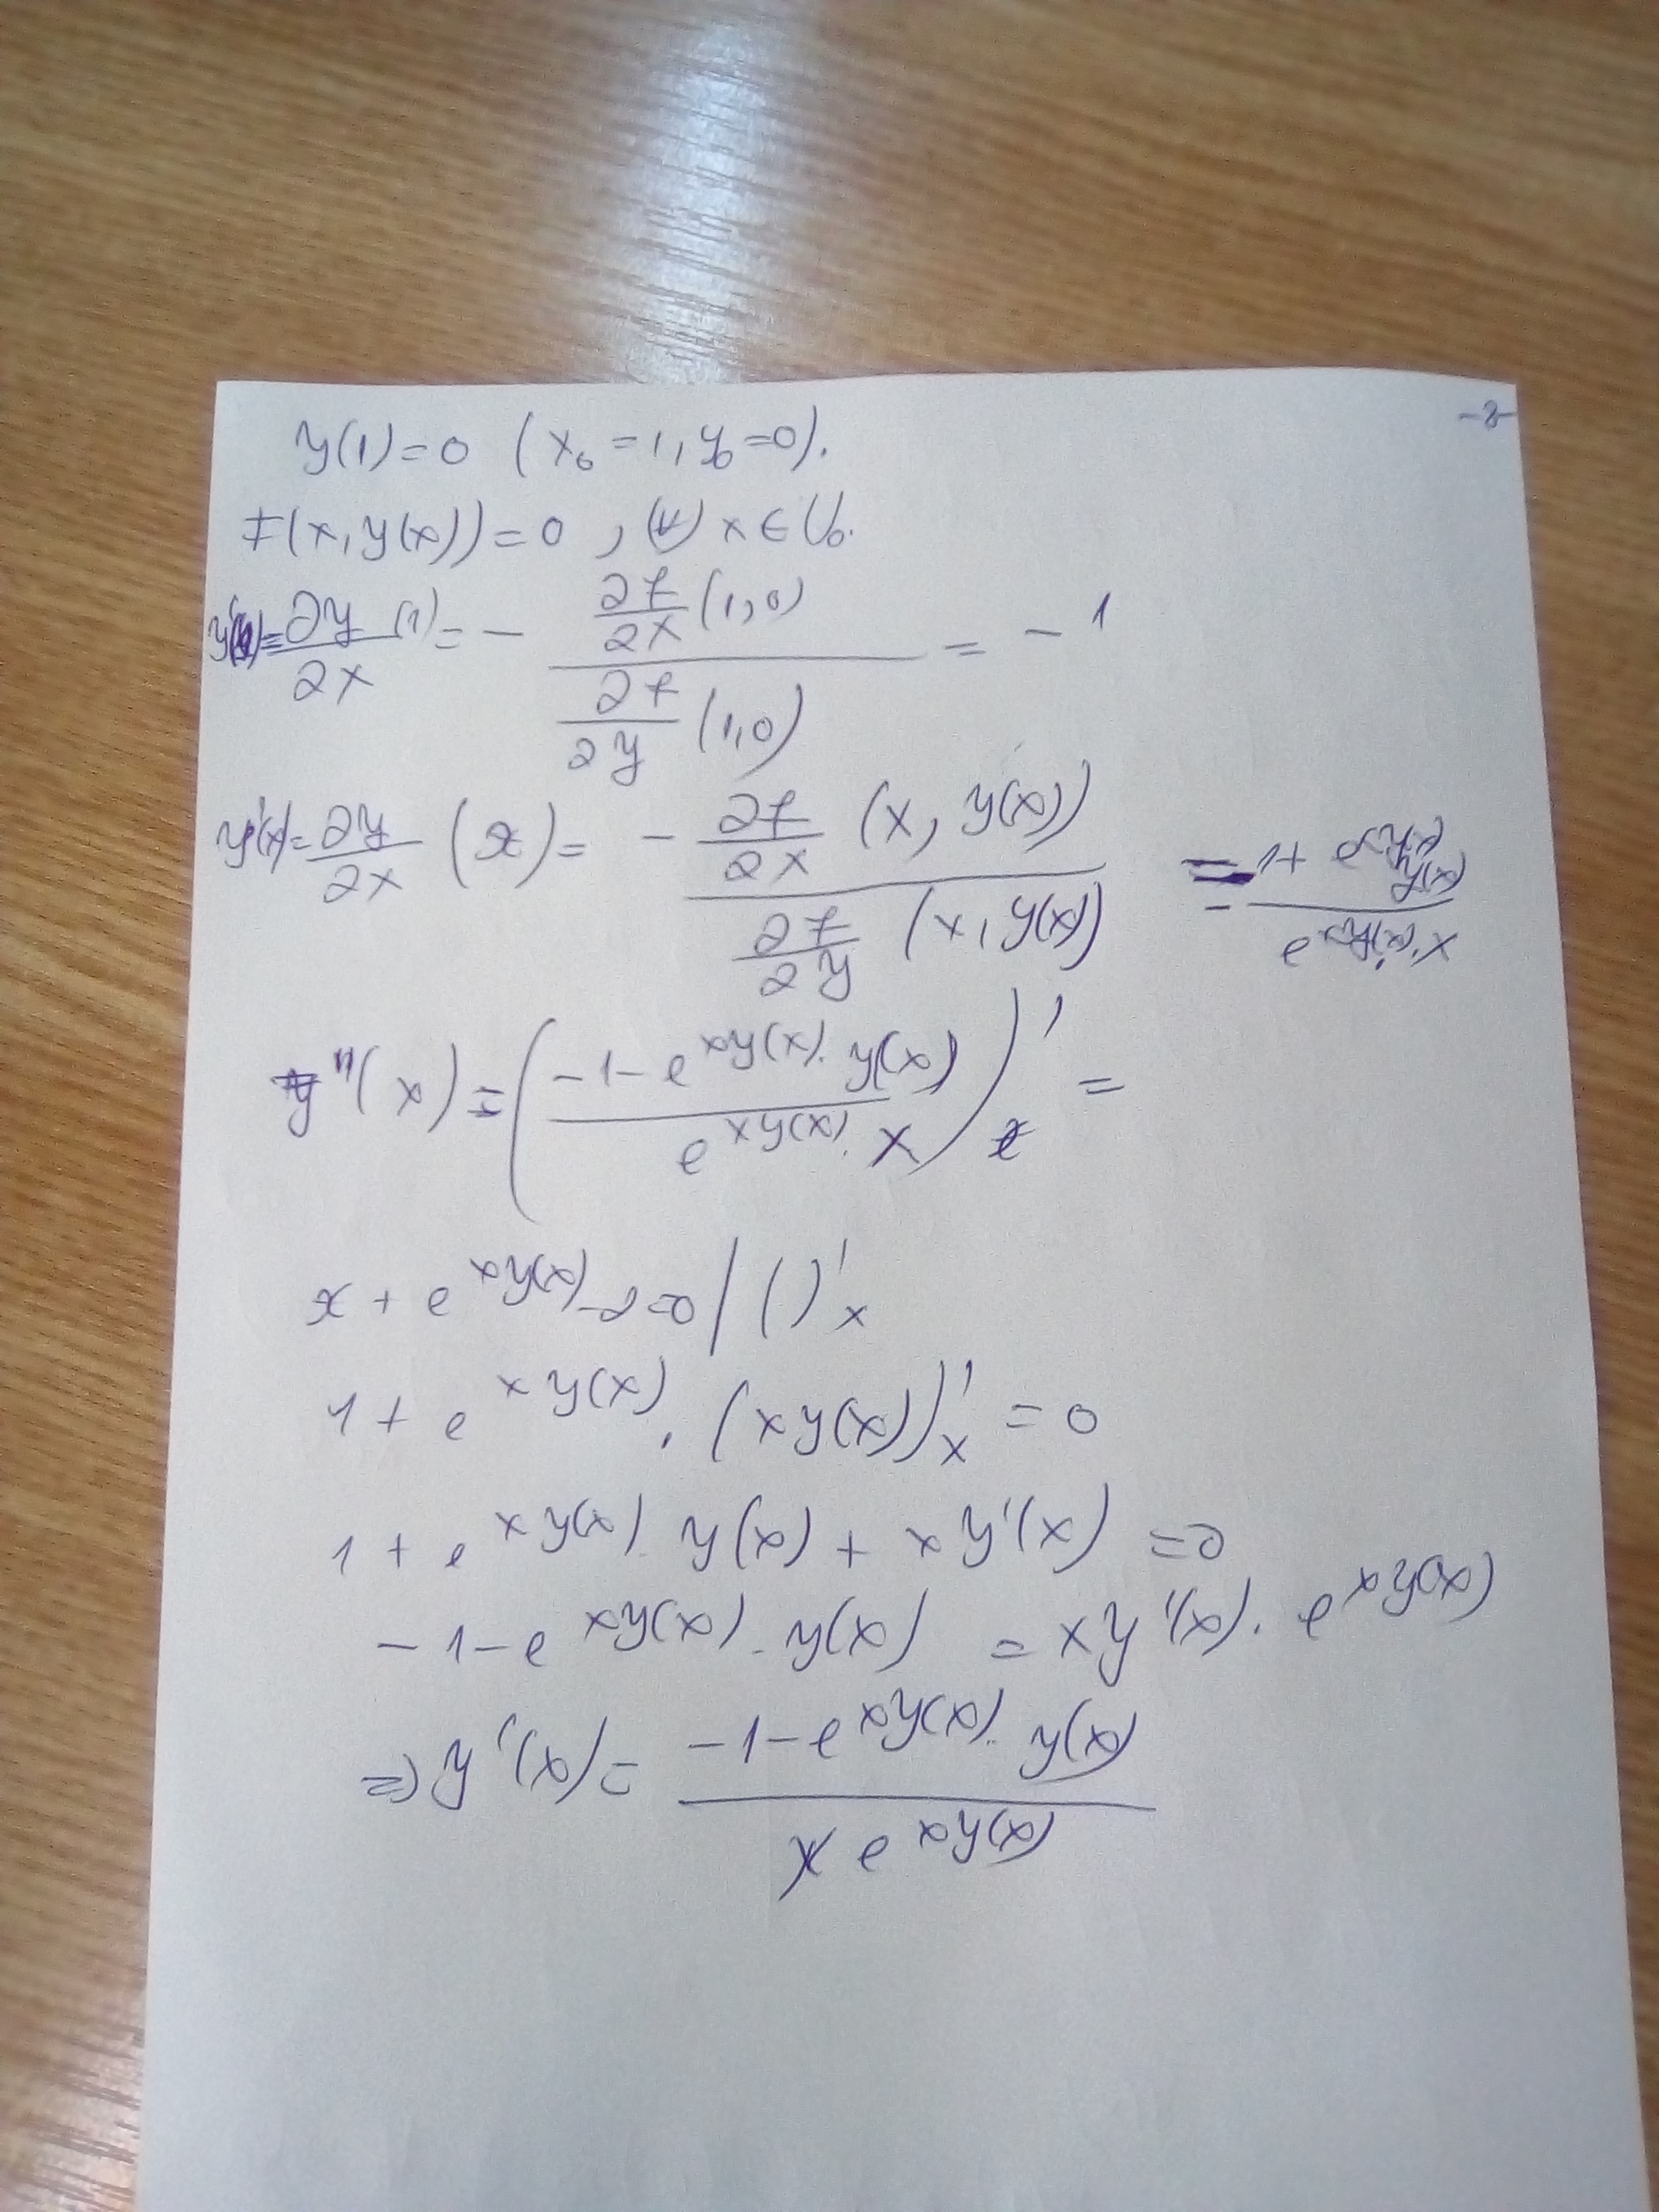 -2-
y(1)=0 (x₀=1, y₀=0).
F(x, y(x))=0, (∀) x ∈ U₀.
y'(1)= ∂y/∂x (1) = - (∂F/∂x (1,0)) / (∂F/∂y (1,0)) = -1
y'(x)= ∂y/∂x (x) = - (∂F/∂x (x, y(x))) / (∂F/∂y (x, y(x))) = - (1+ e^{xy(x)} y(x)) / (e^{xy(x)}·x)
y''(x) = ((-1-e^{xy(x)}·y(x)) / (e^{xy(x)}·x))'ₓ =
x + e^{xy(x)} -2=0 | ( )'ₓ
1 + e^{xy(x)} · (xy(x))'ₓ = 0
1 + e^{xy(x)}·y(x) + xy'(x) =0
-1-e^{xy(x)}·y(x) = xy'(x)·e^{xy(x)}
⇒ y'(x)= (-1-e^{xy(x)}·y(x)) / (x e^{xy(x)})